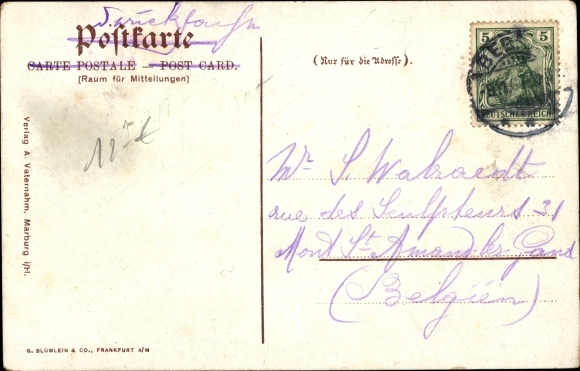 Drucksache
Postkarte
CARTE POSTALE — POST CARD.
(Raum für Mitteilungen)
(Nur für die Adresse).
5 5
DEUTSCHES REICH
Mr S. Walraedt
rue des Sculpteurs 31
Mont St Amand-lez-Gand
(Belgién)
Verlag A. Vaternahm, Marburg i/H.
G. BLÜMLEIN & CO., FRANKFURT A/M